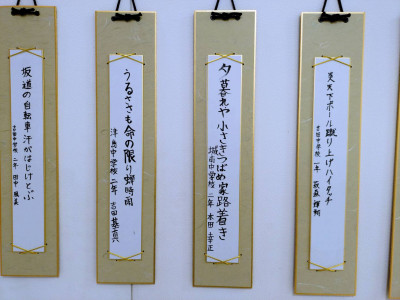 炎天下ボール蹴り上げハイタッチ
吉田中学校 一年
夕暮れや小さきつばめ家路着き
城南中学校 二年 本田 幸正
うるささも命の限り蝉時雨
津島中学校 二年 吉田
坂道の自転車汗がはじけとぶ
吉田中学校 二年 田中